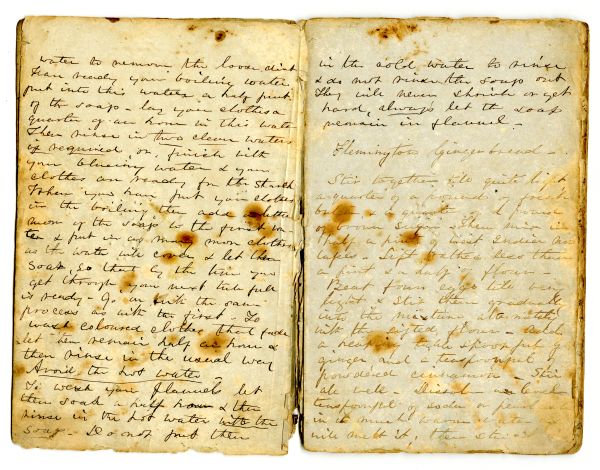 water to remove the loose dirt
Have ready your boiling water
put into this water a half pint
of the soap. lay your clothes a
quarter of an hour in this water
Then rinse in two clean waters
if required or, finish with
your blueing water & your
clothes are ready for the
When you have put your clothes
in the boiling then add another
more of the soap to the first
& put in as many more clothes
as the water will cover & let them
Soak, So that by the time you
get through you next tub full
is ready - Go on with the same
process as with the first To
wash coloured clothes that fade
let them remain half an hour &
then rinse in the usual way
Avoid the hot water
To wash your flannels let
them soak a half hour & then
rinse in the hot water with the
soap - Do not put them
in the cold water to rinse
& do not rinse the soap out
They will never shrink or get
hard, always let the soap
remain in flannel.
Flemington Gingerbread -
Stir together till quite light
a quarter of a pound of fresh
a pound
of brown Sugar - Then mix in
half a pint of West Indies
Sift rather less than
a pint & a half of flour -
Beat four eggs till very
light & stir them gradually
into the mixture alternately
with the sifted flour - add
a heaping table spoonful of
ginger and a teaspoonful
powdered cinnamon - Stir
all well - Dissolve a level
teaspoonful of soda or pearl
in as much warm water as
will melt it, then stir it